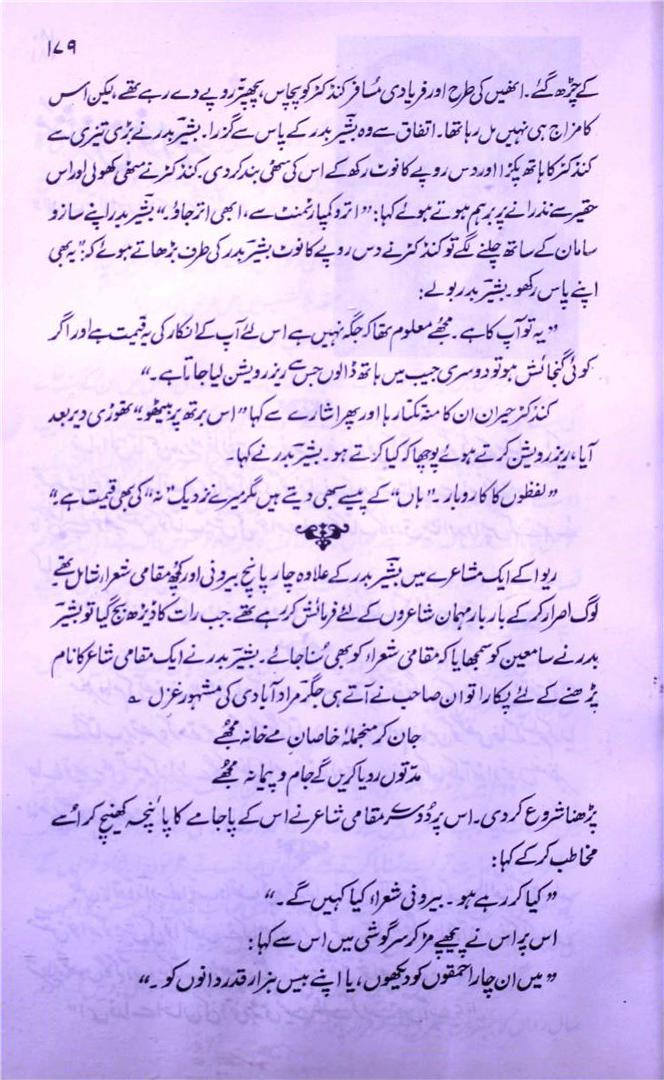 ۱۷۹
کے چڑھ گئے۔ انھیں کی طرح اور فریادی مسافر کنڈکٹر کو پچاس، پچھتر روپے دے رہے تھے، لیکن اس
کا مزاج ہی نہیں مل رہا تھا۔ اتفاق سے وہ بشیر بدر کے پاس سے گزرا۔ بشیر بدر نے بڑی تیزی سے
کنڈکٹر کا ہاتھ پکڑا اور دس روپے کا نوٹ رکھ کے اس کی مٹھی بند کر دی۔ کنڈکٹر نے مٹھی کھولی اور اس
حقیر سے نذرانے پر برہم ہوتے ہوئے کہا: ”اترو کمپارٹمنٹ سے، ابھی اتر جاؤ،“ بشیر بدر اپنے ساز و
سامان کے ساتھ چلنے لگے تو کنڈکٹر نے دس روپے کا نوٹ بشیر بدر کی طرف بڑھاتے ہوئے کہ: ”یہ بھی
اپنے پاس رکھو۔ بشیر بدر بولے:
”یہ تو آپ کا ہے۔ مجھے معلوم تھا کہ جگہ نہیں ہے اس لئے آپ کے انکار کی یہ قیمت ہے اور اگر
کوئی گنجائش ہو تو دوسری جیب میں ہاتھ ڈالوں جس سے ریزرویشن لیا جاتا ہے۔“
کنڈکٹر حیران ان کا منہ تکتا رہا اور پھر اشارے سے کہا ”اس برتھ پر بیٹھو“ تھوڑی دیر بعد
آیا، ریزرویشن کرتے ہوئے پوچھا کہ کیا کرتے ہو۔ بشیر بدر نے کہا۔
”لفظوں کا کاروبار۔ ”ہاں“ کے پیسے سبھی دیتے ہیں مگر میرے نزدیک ”نہ“ کی بھی قیمت ہے“
ریوا کے ایک مشاعرے میں بشیر بدر کے علاوہ چار پانچ بیرونی اور کچھ مقامی شعراء شامل تھے
لوگ اصرار کر کے بار بار مہمان شاعروں کے لئے فرمائش کر رہے تھے۔ جب رات کا ڈیڑھ بج گیا تو بشیر
بدر نے سامعین کو سمجھایا کہ مقامی شعراء کو بھی سُنا جائے۔ بشیر بدر نے ایک مقامی شاعر کا نام
پڑھنے کے لئے پکارا تو ان صاحب نے آتے ہی جگر مراد آبادی کی مشہور غزل ؎
جان کر منجملۂ خاصان مے خانہ مجھے
مدّتوں رویا کریں گے جام و پیمانہ مجھے
پڑھنا شروع کر دی۔ اس پر دوسرے مقامی شاعر نے اس کے پاجامے کا پائنچہ کھینچ کر اسے
مخاطب کر کے کہا:
”کیا کر رہے ہو۔ بیرونی شعراء کیا کہیں گے۔“
اس پر اس نے پیچھے مڑ کر سرگوشی میں اس سے کہا:
”میں ان چار احمقوں کو دیکھوں، یا اپنے بیس ہزار قدر دانوں کو۔“